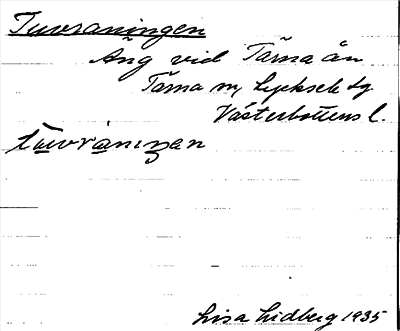 Tuvraningen
Äng vid Tärna ån
Tärna sn, Lycksele lg
Västerbottens l.
tuvråniŋen
Lisa Lidberg 1935